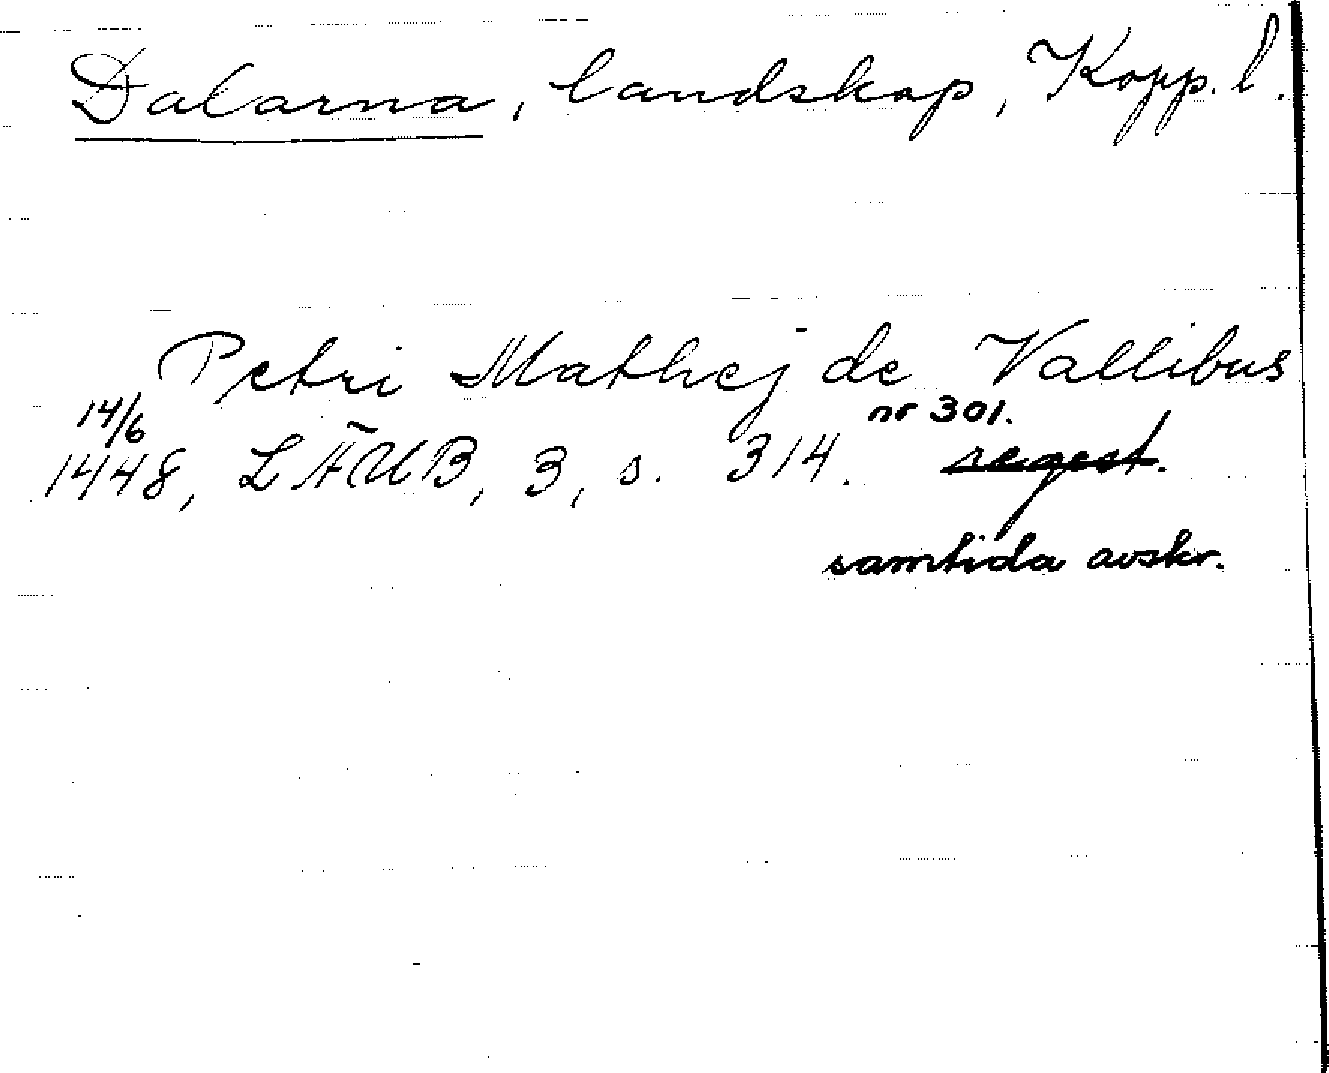 Dalarna, landskap, Kopp. l.
Petri Mathej de Vallibus
14/6 nr 301.
1448, LÄUB, 3, s. 314. regest.
samtida avskr.